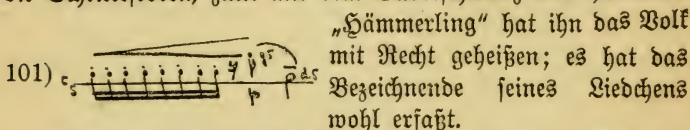 „Hämmerling“ hat ihn das Volk
mit Recht geheißen; es hat das
101)
Bezeichnende seines Liedchens
wohl erfaßt.